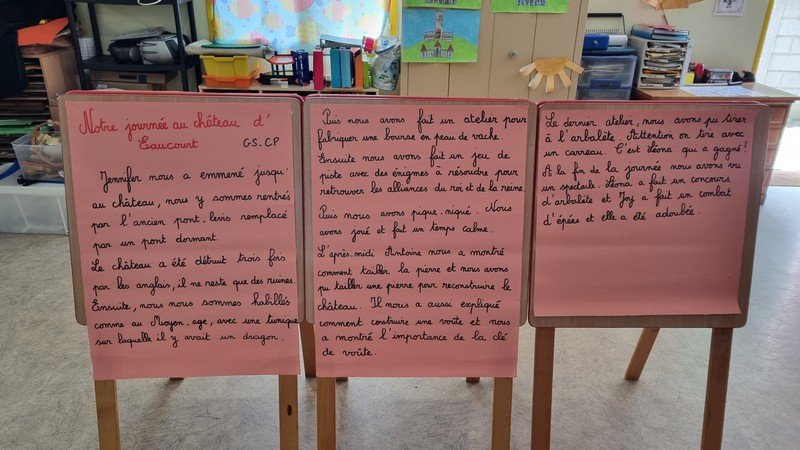 Notre journée au château d'
Eaucourt GS-CP
Jennifer nous a emmené jusqu'
au château, nous y sommes rentrés
par l'ancien pont-levis remplacé
par un pont dormant.
Le château a été détruit trois fois
par les anglais, il ne reste que des ruines.
Ensuite, nous nous sommes habillés
comme au Moyen-age, avec une tunique
sur laquelle il y avait un dragon.
Puis nous avons fait un atelier pour
fabriquer une bourse en peau de vache.
Ensuite nous avons fait un jeu de
piste avec des énigmes à résoudre pour
retrouver les alliances du roi et de la reine.
Puis nous avons pique-niqué. Nous
avons joué et fait un temps calme.
L'après-midi Antoine nous a montré
comment tailler la pierre et nous avons
pu tailler une pierre pour reconstruire le
château. Il nous a aussi expliqué
comment construire une voûte et nous
a montré l'importance de la clé
de voûte.
Le dernier atelier, nous avons pu tirer
à l'arbalète. Attention on tire avec
un carreau. C'est Léona qui a gagné!
A la fin de la journée nous avons vu
un spectacle. Léona a fait un concours
d'arbalète et Joy a fait un combat
d'épées et elle a été adoubée.